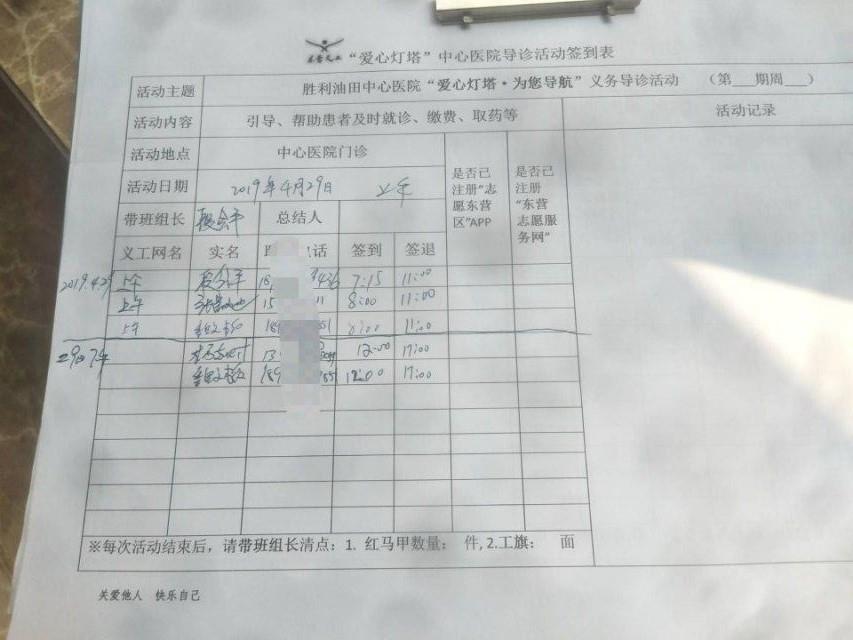 “爱心灯塔”中心医院导诊活动签到表
活动主题 胜利油田中心医院“爱心灯塔·为您导航”义务导诊活动 （第___期周___）
活动内容 引导、帮助患者及时就诊、缴费、取药等 活动记录
活动地点 中心医院门诊 是否已注册“志愿东营区”APP 是否已注册“东营志愿服务网”
活动日期 2019年4月29日 上午
带班组长 总结人
义工网名 实名 话 签到 签退
2019.4.29 上午 7:15 11:00
上午 15 11 8:00 11:00
上午 8:00 11:00
29日下午 13 12:00 17:00
189 12:00 17:00
※每次活动结束后，请带班组长清点：1. 红马甲数量： 件, 2.工旗： 面
关爱他人 快乐自己